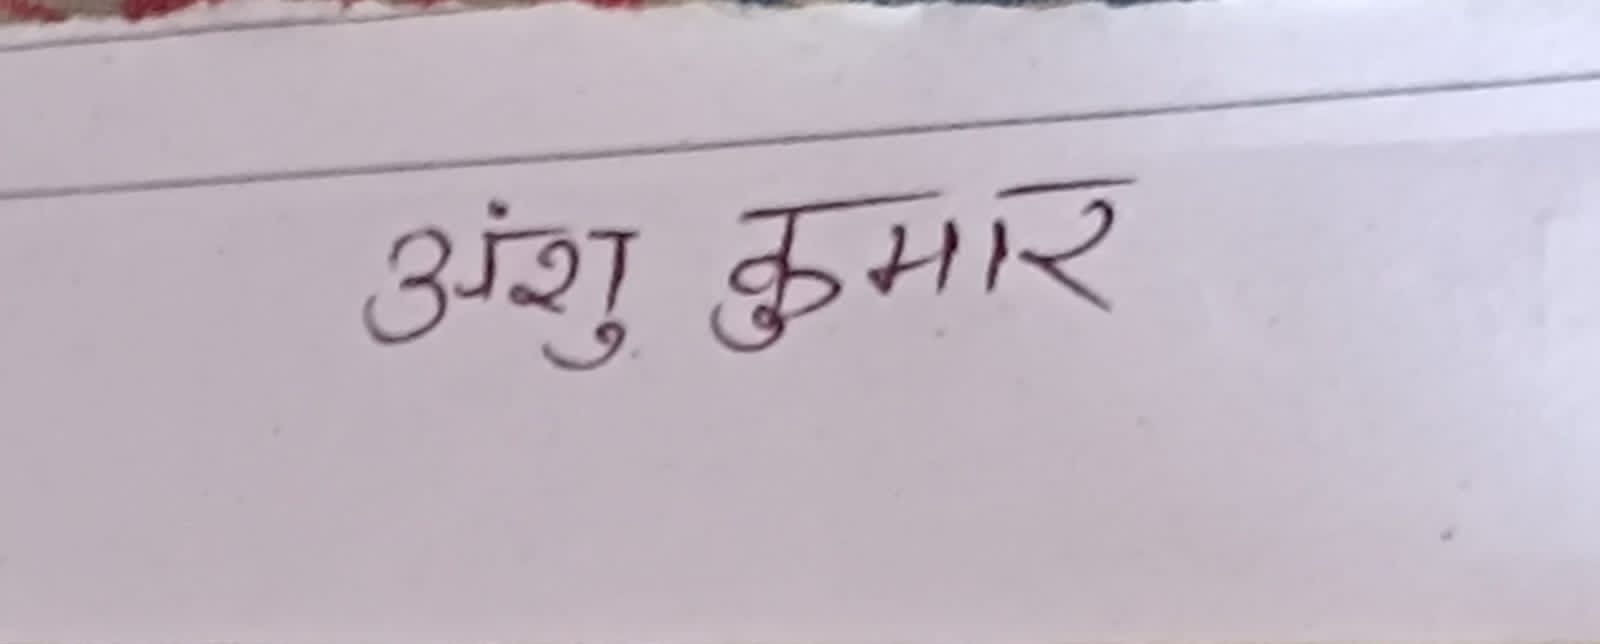 अंशु कुमार